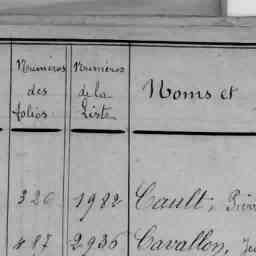 Numéros des folios. Numéros de la Liste Noms et
326 1982 Cault, Pierr
487 2936 Cavallon, Je